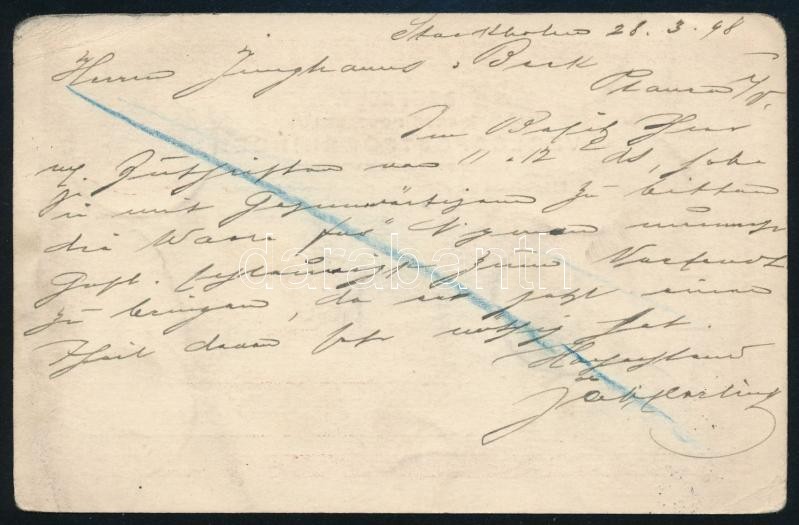 Stockholm 28.3.98
Herrn Junghanns & Beck
Plauen i/V.
Im Besitz Ihrer
Zuschriften von 11 & 12 ds, habe
Sie mit Gegenwärtigem zu bitten
die Waare für Nyman nunmehr
Gefl. schleunigst zum Versandt
zu bringen, da er jetzt einen
Theil davon sehr nöthig hat.
Hochachtend
darabanth